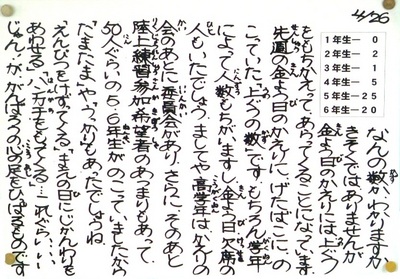 4/26
1年生― 0
2年生― 2
3年生― 1
4年生― 5
5年生―25
6年生―20
なんの数か、わかりますか。
きそくではありませんが、
金よう日のかえりには、上ぐつ
をもちかえって、あらってくることになっています。
先週の金よう日のかえりに、げたばこに、の
こっていた「上ぐつの数」です。もちろん、学年
によって人数もちがいますし、金よう日、欠席の
人もいたでしょう。ましてや高学年は、かえりの
会のあとに委員会があり、さらに、そのあと
陸上練習参加希望者のあつまりもあって、
50人ぐらいの5・6年生がのこっていましたから
「たまたま」や「うっかり」もあったでしょうね。
「えんぴつをけずってくる」「まえの日にじかんわりを
あわせる」「ハンカチをもってくる」…これぐらい…
じゃんが、がんばろうの心の足をひっぱるものです